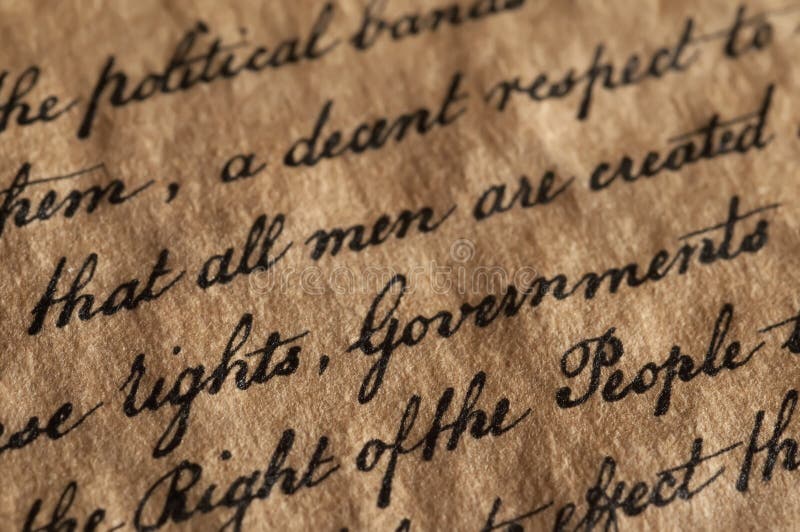 the political bands
them, a decent respect to
that all men are created
ese rights, Governments
the Right of the People t
to effect th